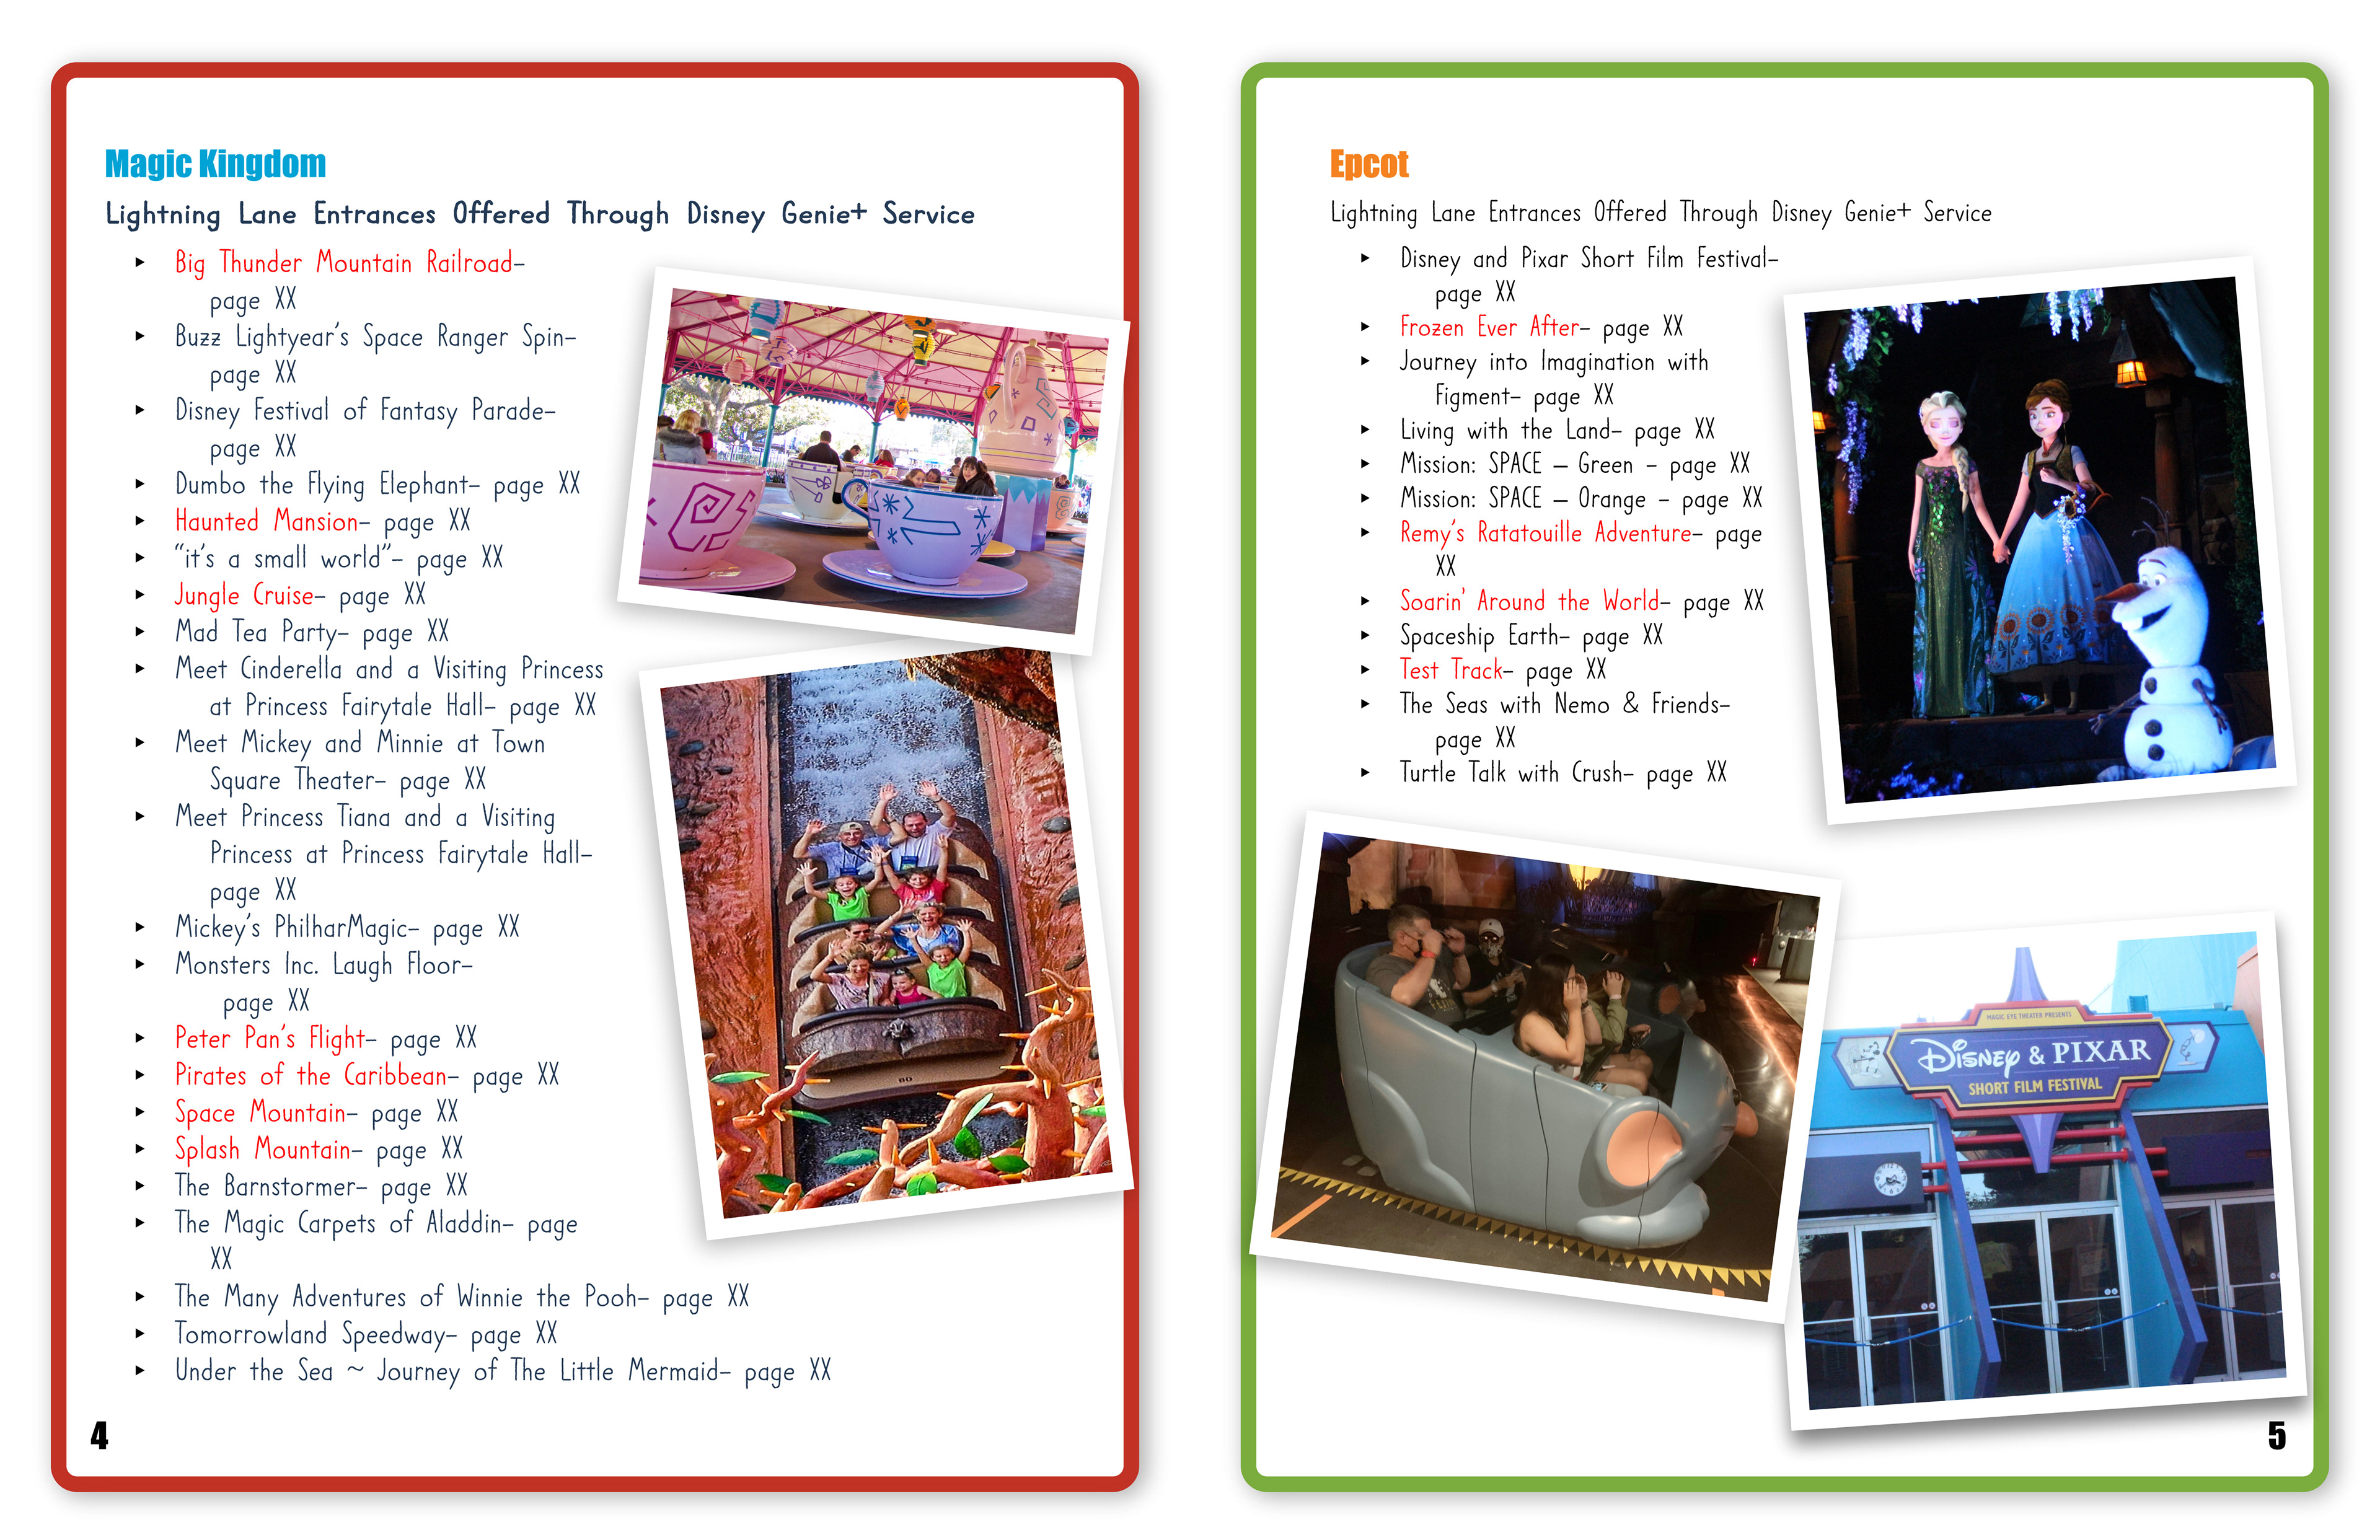 Magic Kingdom
Lightning Lane Entrances Offered Through Disney Genie+ Service
‣ Big Thunder Mountain Railroad–
page XX
‣ Buzz Lightyear’s Space Ranger Spin–
page XX
‣ Disney Festival of Fantasy Parade–
page XX
‣ Dumbo the Flying Elephant– page XX
‣ Haunted Mansion– page XX
‣ “it’s a small world”– page XX
‣ Jungle Cruise– page XX
‣ Mad Tea Party– page XX
‣ Meet Cinderella and a Visiting Princess
at Princess Fairytale Hall– page XX
‣ Meet Mickey and Minnie at Town
Square Theater– page XX
‣ Meet Princess Tiana and a Visiting
Princess at Princess Fairytale Hall–
page XX
‣ Mickey’s PhilharMagic– page XX
‣ Monsters Inc. Laugh Floor–
page XX
‣ Peter Pan’s Flight– page XX
‣ Pirates of the Caribbean– page XX
‣ Space Mountain– page XX
‣ Splash Mountain– page XX
‣ The Barnstormer– page XX
‣ The Magic Carpets of Aladdin– page
XX
‣ The Many Adventures of Winnie the Pooh– page XX
‣ Tomorrowland Speedway– page XX
‣ Under the Sea ~ Journey of The Little Mermaid– page XX
4
Epcot
Lightning Lane Entrances Offered Through Disney Genie+ Service
‣ Disney and Pixar Short Film Festival–
page XX
‣ Frozen Ever After– page XX
‣ Journey into Imagination with
Figment– page XX
‣ Living with the Land– page XX
‣ Mission: SPACE – Green - page XX
‣ Mission: SPACE – Orange - page XX
‣ Remy’s Ratatouille Adventure– page
XX
‣ Soarin’ Around the World– page XX
‣ Spaceship Earth– page XX
‣ Test Track– page XX
‣ The Seas with Nemo & Friends–
page XX
‣ Turtle Talk with Crush– page XX
MAGIC EYE THEATER PRESENTS
Disney & PIXAR
SHORT FILM FESTIVAL
5